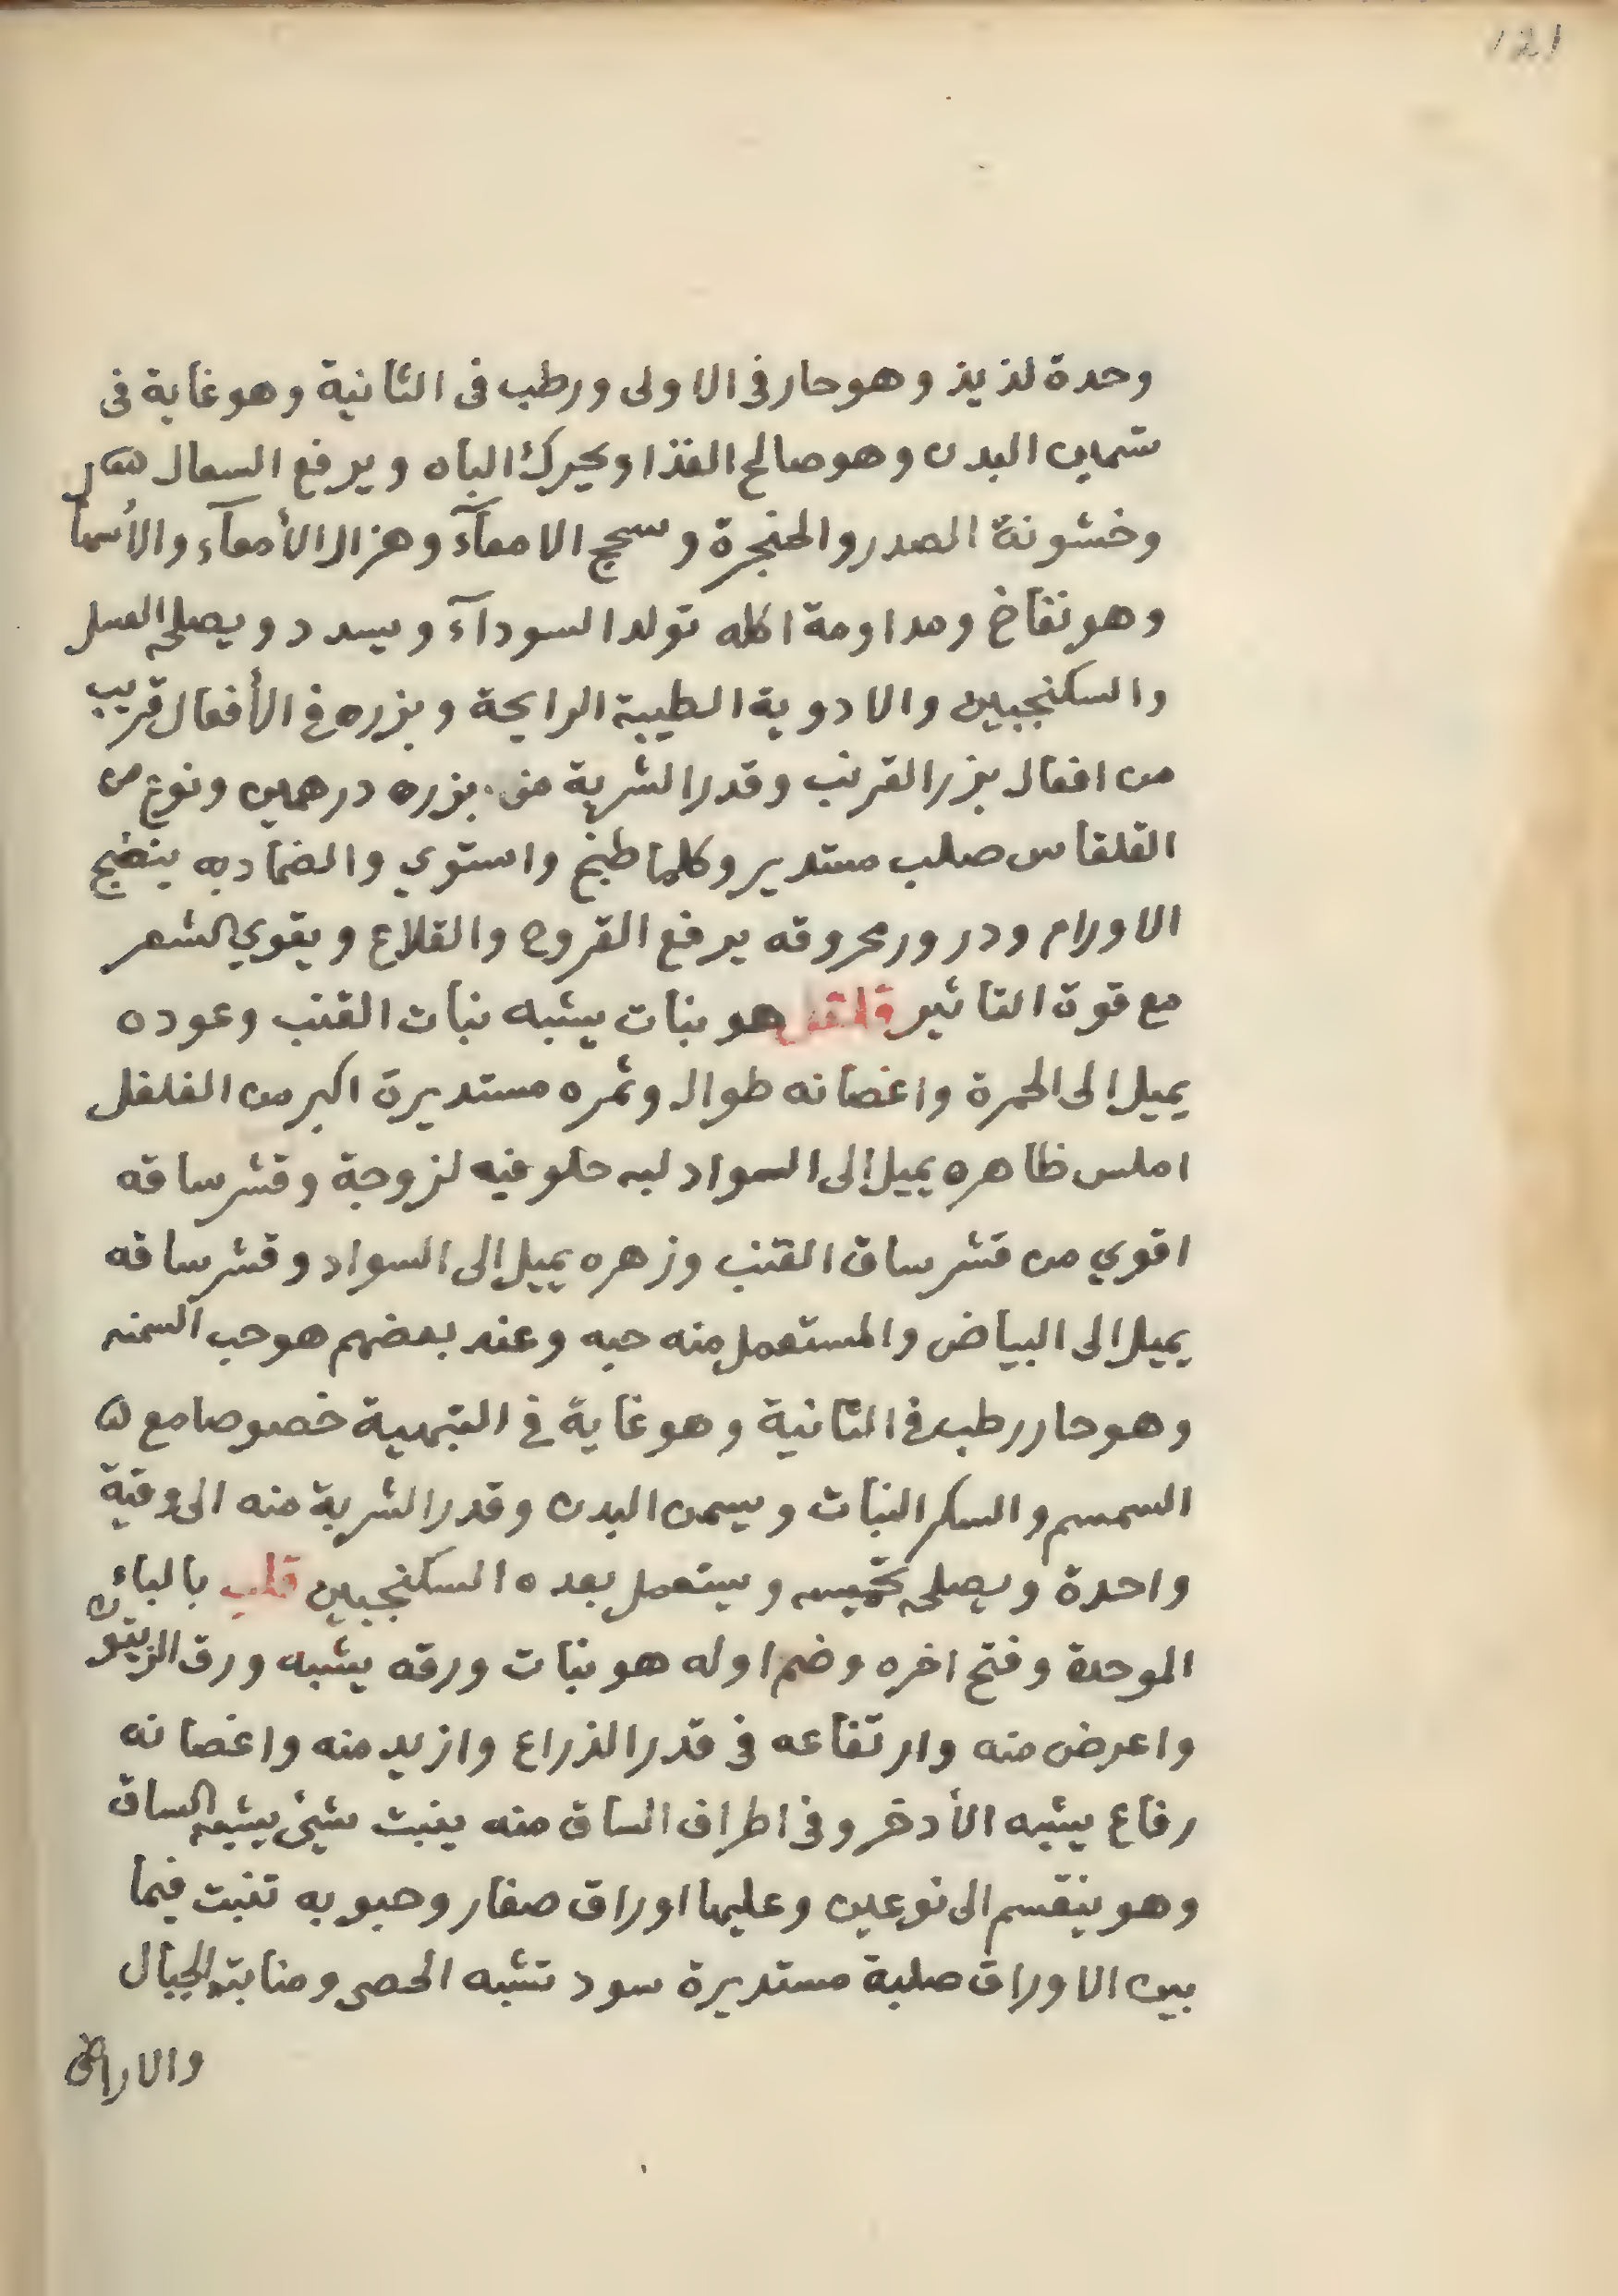 121
وحدة لذيذ وهو حار فى الاولى ورطب فى الثانية وهو غاية فى
تسمين البدن وهو صالح الغذا ويحرك الباه ويرفع السعال
وخشونة الصدر والحنجرة وسحج الامعآء وهزال الأمعآء والأسما
وهو نفاخ ومداومة اكله تولد السودآء ويسدد ويصلحه العسل
والسكنجبين والادوية الطيبة الرايحة وبزره فى الأفعال قريب
من افعال بزر القريب وقدر الشربة من بزره درهمين ونوع من
القلقاس صلب مستدير وكلما طبخ واستوي والضماد به ينضج
الاورام ودرور محروقه يرفع القروح والقلاع ويقوي الشعر
مع قوة التاثير قلقل هو نبات يشبه نبات القنب وعوده
يميل الى الحمرة واغصانه طوال وثمره مستديرة اكبر من الفلفل
املس ظاهره يميل الى السواد لبه حلو فيه لزوجة وقشر ساقه
اقوي من قشر ساق القنب وزهره يميل الى السواد وقشر ساقه
يميل الى البياض والمستعمل منه حبه وعند بعضهم هو حب السمنه
وهو حار رطب فى الثانية وهو غاية فى التبهية خصوصا مع
السمسم والسكر النبات ويسمن البدن وقدر الشربة منه الى وقية
واحدة ويصلحه تحميصه ويستعمل بعده السكنجبين قلب بالباء
الموحدة وفتح اخره وضم اوله هو نبات ورقه يشبه ورق الزيتون
واعرض منه وارتفاعه فى قدر الذراع وازيد منه واغصانه
رفاع يشبه الأدخر وفى اطراف الساق منه ينبت شيئ يشبه الساق
وهو ينقسم الى نوعين وعليها اوراق صغار وحبوبه تنبت فيما
بين الاوراق صلبة مستديرة سود تشبه الحصى ومنابته الجبال
والاراضى